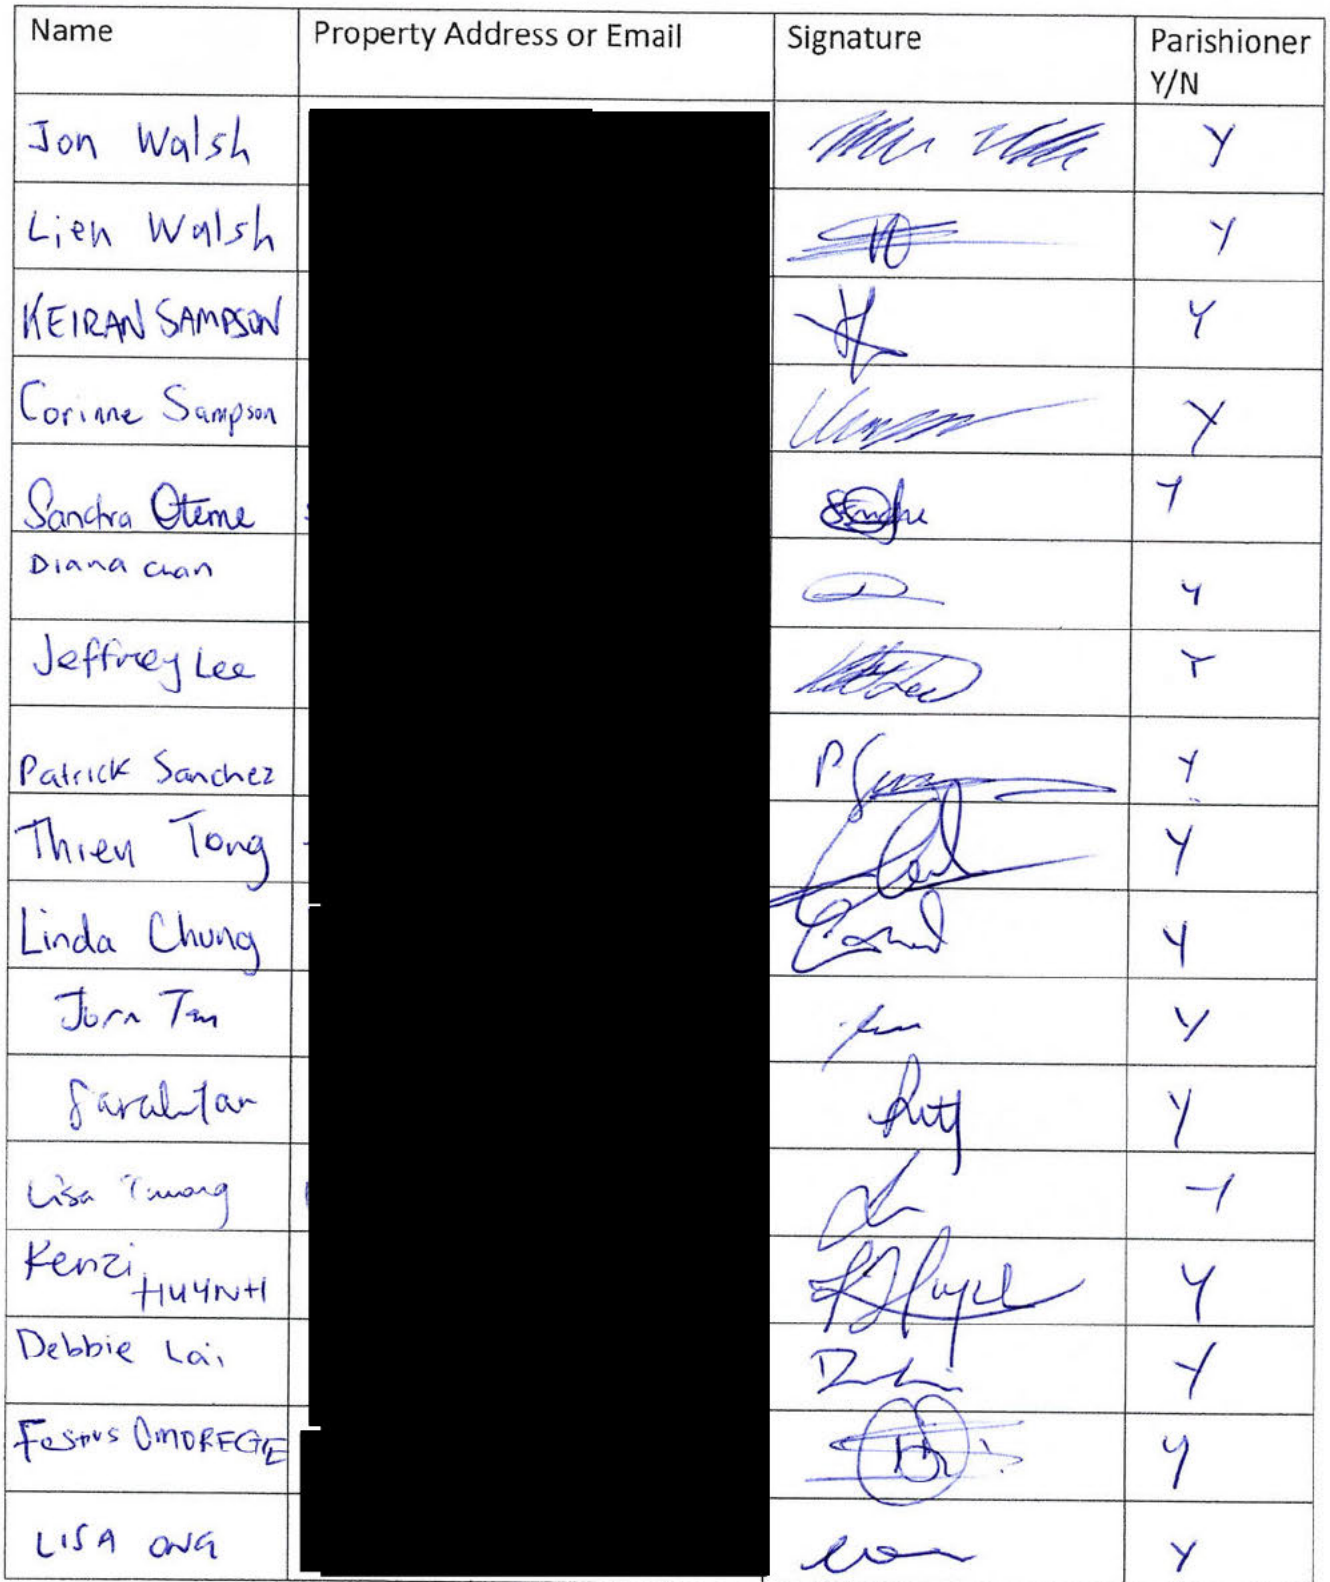 Name Property Address or Email Signature Parishioner
Y/N
Jon Walsh Y
Lien Walsh Y
KEIRAN SAMPSON Y
Corinne Sampson Y
Sandra Oteme Y
Diana Chan Y
Jeffrey Lee Y
Patrick Sanchez Y
Thien Tong Y
Linda Chung Y
Tan Y
Sarah Tan Y
Lisa Y
Kenzi
HUYNH Y
Debbie Lai Y
Festus OMOREGIE Y
LISA ONG Y